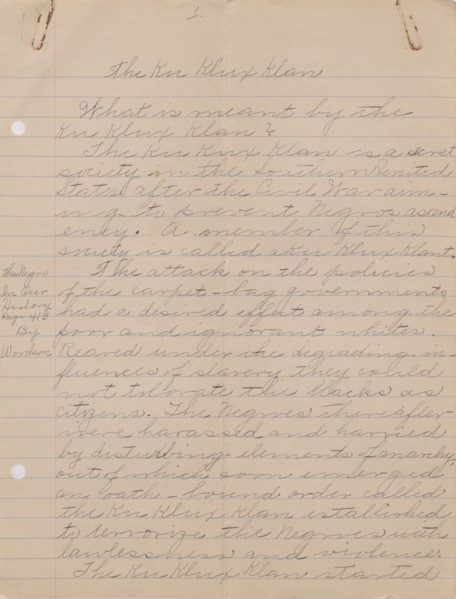 1.
The Ku Klux Klan
What is meant by the
Ku Klux Klan?
The Ku Kux Klan is a secret
society in the Southern United
States after the Civil War aim-
ing to prevent Negros ascend
ency. A member of this
society is called a Ku Klux Klant.
The attack on the policies
of the carpet-bag governments
had a desired effect among the
poor and ignorant whites.
Reared under the degrading in-
fluences of slavery they could
not tolorate the blacks as
citizens. The Negroes thereafter
were harassed and harried
by disturbing elements of anarchy,
out of which soon emerged
an oath-bound order called
the Ku Klux Klan established
to terrorize the Negroes with
lawlessness and violence.
The Ku Klux Klan started
The Negro
In Our
History
By